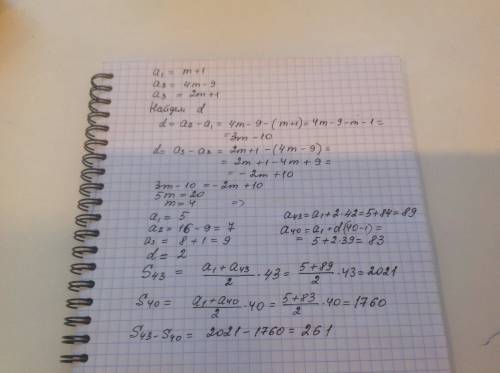 a₁ = m+1
a₂ = 4m-9
a₃ = 2m+1
Найдем d
d = a₂ - a₁ = 4m-9-(m+1)=4m-9-m-1=
=3m-10
d= a₃ - a₂ = 2m+1-(4m-9)=
= 2m+1-4m+9=
= -2m+10
3m-10=-2m+10
5m=20
m=4 =>
a₁ = 5
a₂ = 16-9 = 7
a₃ = 8+1 = 9
d = 2
a₄₃=a₁+2·42=5+84=89
a₄₀=a₁+d(40-1)=
= 5+2·39= 83
S₄₃ = (a₁+a₄₃)/2 · 43 = (5+89)/2 · 43=2021
S₄₀ = (a₁+a₄₀)/2 · 40 = (5+83)/2 · 40=1760
S₄₃-S₄₀ = 2021-1760= 261